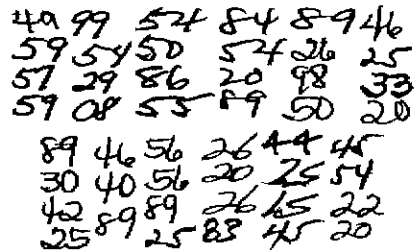 49 99 54 84 89 46
59 54 50 54 26 25
57 29 86 20 98 33
59 08 55 89 50 20
89 46 56 26 44 45
30 40 56 20 25 54
42 89 89 26 65 22
25 25 83 45 20